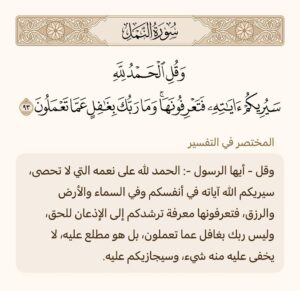 سُورَةُ النَّمْلِ
وَقُلِ ٱلْحَمْدُ لِلَّهِ
سَيُرِيكُمْ ءَايَٰتِهِۦ فَتَعْرِفُونَهَا ۚ وَمَا رَبُّكَ بِغَٰفِلٍ عَمَّا تَعْمَلُونَ ٩٣
المختصر في التفسير
وقل - أيها الرسول -: الحمد لله على نعمه التي لا تحصى،
سيريكم الله آياته في أنفسكم وفي السماء والأرض
والرزق، فتعرفونها معرفة ترشدكم إلى الإذعان للحق،
وليس ربك بغافل عما تعملون، بل هو مطلع عليه، لا
يخفى عليه منه شيء، وسيجازيكم عليه.